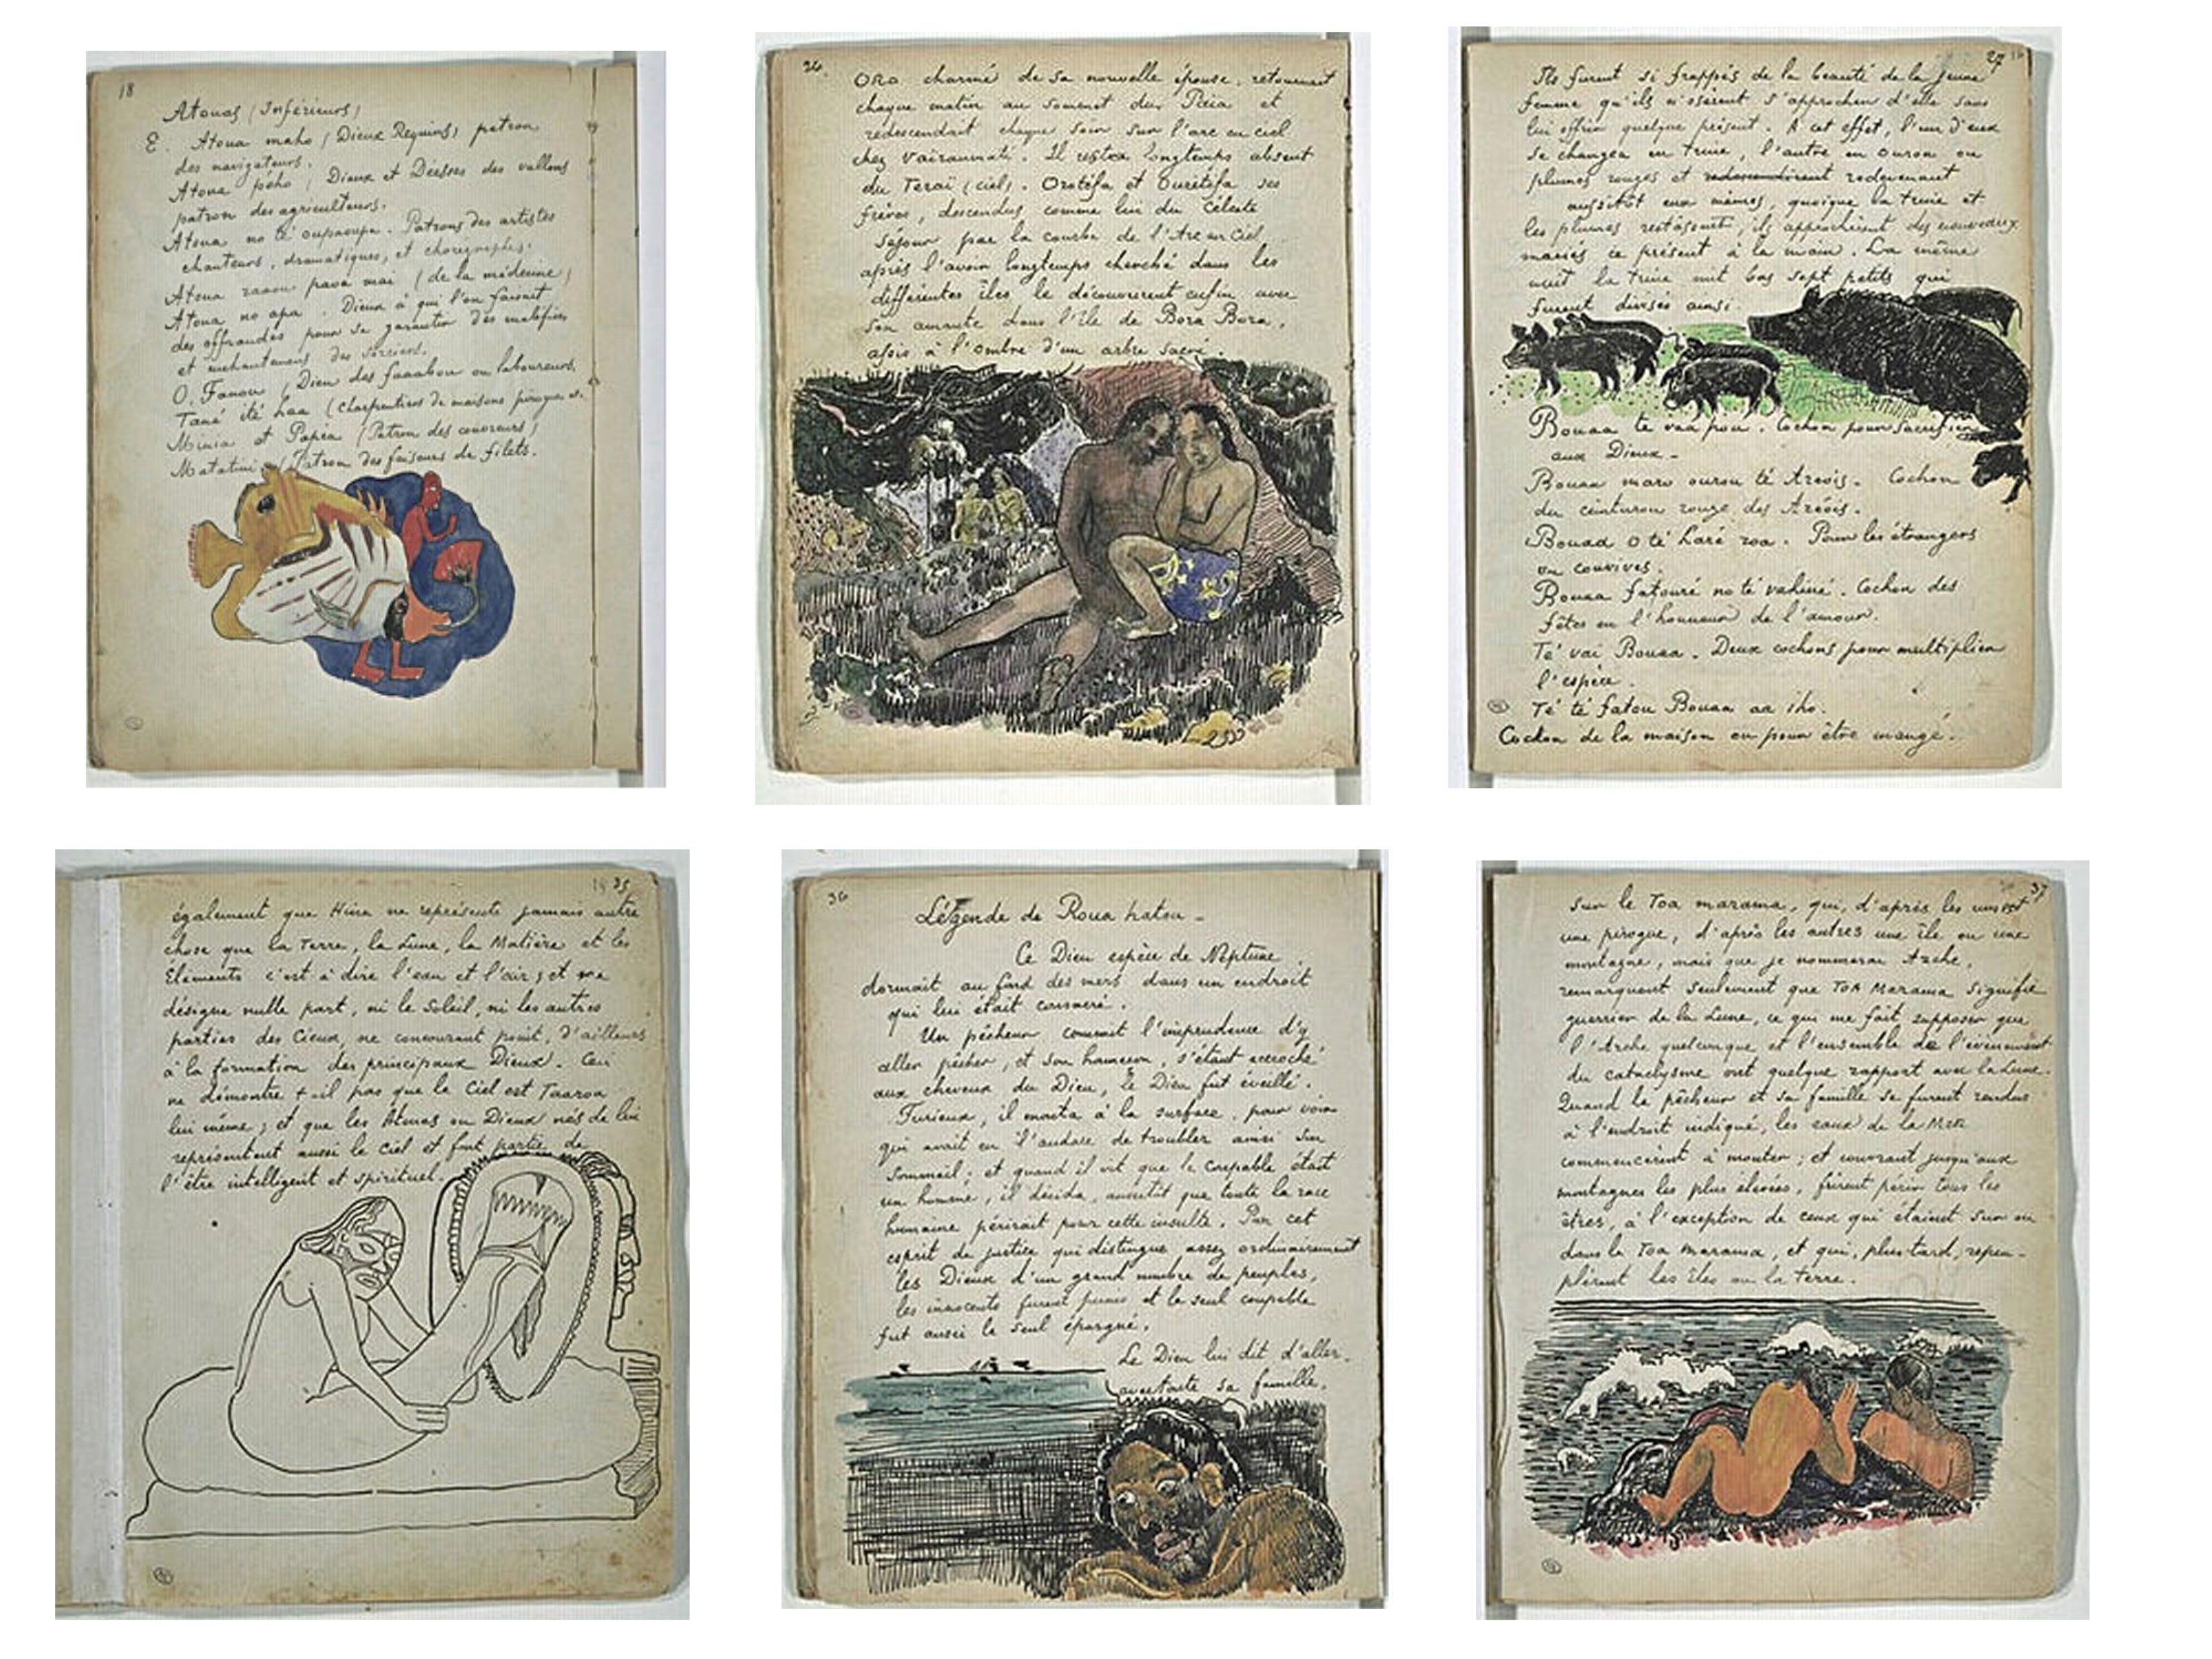 18
Atouas (Inférieurs)
E. Atoua maho (Dieux Requins) patron
des navigateurs.
Atoua peho (Dieux et Déesses des vallons
patron des agriculteurs.
Atoua no té oupaoupa. Patrons des artistes
chanteurs, dramatiques, et choregraphes.
Atoua raaou pava mai (de la médecine)
Atoua no apa. Dieux à qui l'on faisait
des offrandes pour se garantir des maléfices
et enchantements des sorciers.
O. Fanou (Dieu des faaabou ou laboureurs.
Tané ité haa (Charpentiers de maisons pirogues etc.
Minia et Papéa (Patron des couvreurs)
Matatini (Patron des faiseurs de filets.
24
ORO charmé de sa nouvelle épouse, retournait
chaque matin au sommet du Païa et
redescendait chaque soir sur l'arc en ciel
chez Vaïraumati. Il resta longtemps absent
du Teraï (ciel). Orotéfa et Ourétéfa ses
frères, descendus comme lui du céleste
séjour par la courbe de l'Arc en Ciel
après l'avoir longtemps cherché dans les
différentes îles, le découvrirent enfin avec
son amante dans l'île de Bora Bora,
assis à l'ombre d'un arbre sacré.
27
Ils furent si frappés de la beauté de la jeune
femme qu'ils n'osèrent s'approcher d'elle sans
lui offrir quelque présent. A cet effet, l'un d'eux
se changea en truie, l'autre en ourou ou
plumes rouges et redescendirent redevenant
aussitôt eux mêmes, quoique la truie et
les plumes restassent, ils approchèrent des nouveaux
mariés ce présent à la main. La même
nuit la truie mit bas sept petits qui
furent divisés ainsi
Bouaa te vaa pou. Cochon pour sacrifier
aux Dieux.
Bouaa maro ourou té Aréois. Cochon
du ceinturon rouge des Aréois.
Bouaa o té haré roa. Pour les étrangers
ou convives.
Bouaa fatouré no té vahiné. Cochon des
fêtes en l'honneur de l'amour.
Té vai Bouaa. Deux cochons pour multiplier
l'espèce.
Té té fatou Bouaa aa iho.
Cochon de la maison ou pour être mangé.
35
également que Hina ne représente jamais autre
chose que la Terre, la Lune, la Matière et les
Eléments c'est à dire l'eau et l'air; et ne
désigne nulle part, ni le Soleil, ni les autres
parties des Cieux, ne concourant point, d'ailleurs
à la formation des principaux Dieux. Ceci
ne démontre t-il pas que le Ciel est Taaroa
lui même; et que les Atouas ou Dieux nés de lui
représentent aussi le Ciel et font partie de
l'être intelligent et spirituel.
36
Légende de Roua hatou -
Ce Dieu espèce de Neptune
dormait au fond des mers dans un endroit
qui lui était consacré.
Un pêcheur commit l'imprudence d'y
aller pêcher, et son hameçon, s'étant accroché
aux cheveux du Dieu, le Dieu fut éveillé.
Furieux, il monta à la surface, pour voir
qui avait eu l'audace de troubler ainsi son
sommeil; et quand il vit que le coupable était
un homme, il décida, aussitôt que toute la race
humaine périrait pour cette insulte. Par cet
esprit de justice qui distingue assez ordinairement
les Dieux d'un grand nombre de peuples,
les innocents furent punis et le seul coupable
fut aussi le seul épargné.
Le Dieu lui dit d'aller
avec toute sa famille,
37
sur le Toa marama, qui, d'après les uns est
une pirogue, d'après les autres une île ou une
montagne, mais que je nommerai Arche,
remarquant seulement que TOA Marama signifie
guerrier de la Lune, ce qui me fait supposer que
l'Arche quelconque et l'ensemble de l'évènement
du cataclysme ont quelque rapport avec la Lune.
Quand le pêcheur et sa famille se furent rendus
à l'endroit indiqué, les eaux de la Mer
commencèrent à monter; et couvrant jusqu'aux
montagnes les plus élevées, firent périr tous les
êtres, à l'exception de ceux qui étaient sur ou
dans le Toa marama, et qui, plus tard, repeu-
plèrent les îles ou la terre.